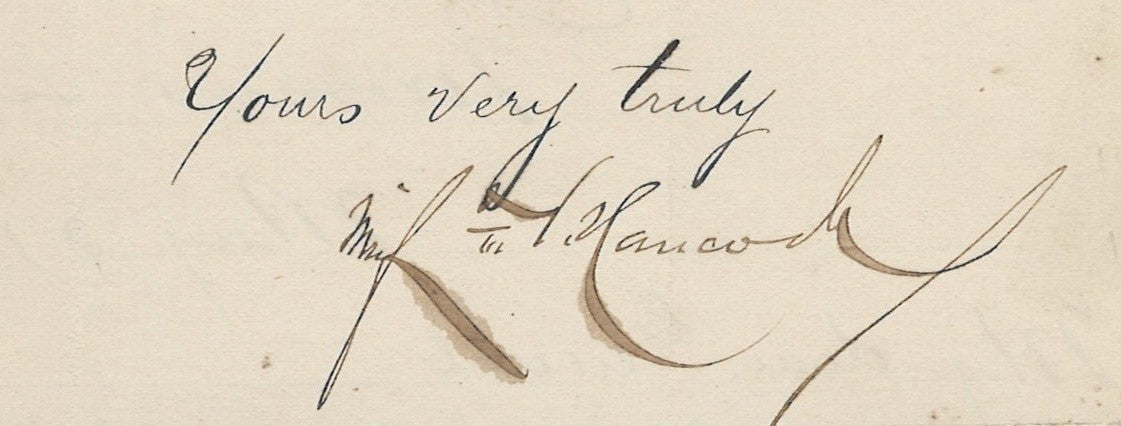 Yours very truly
Hancock